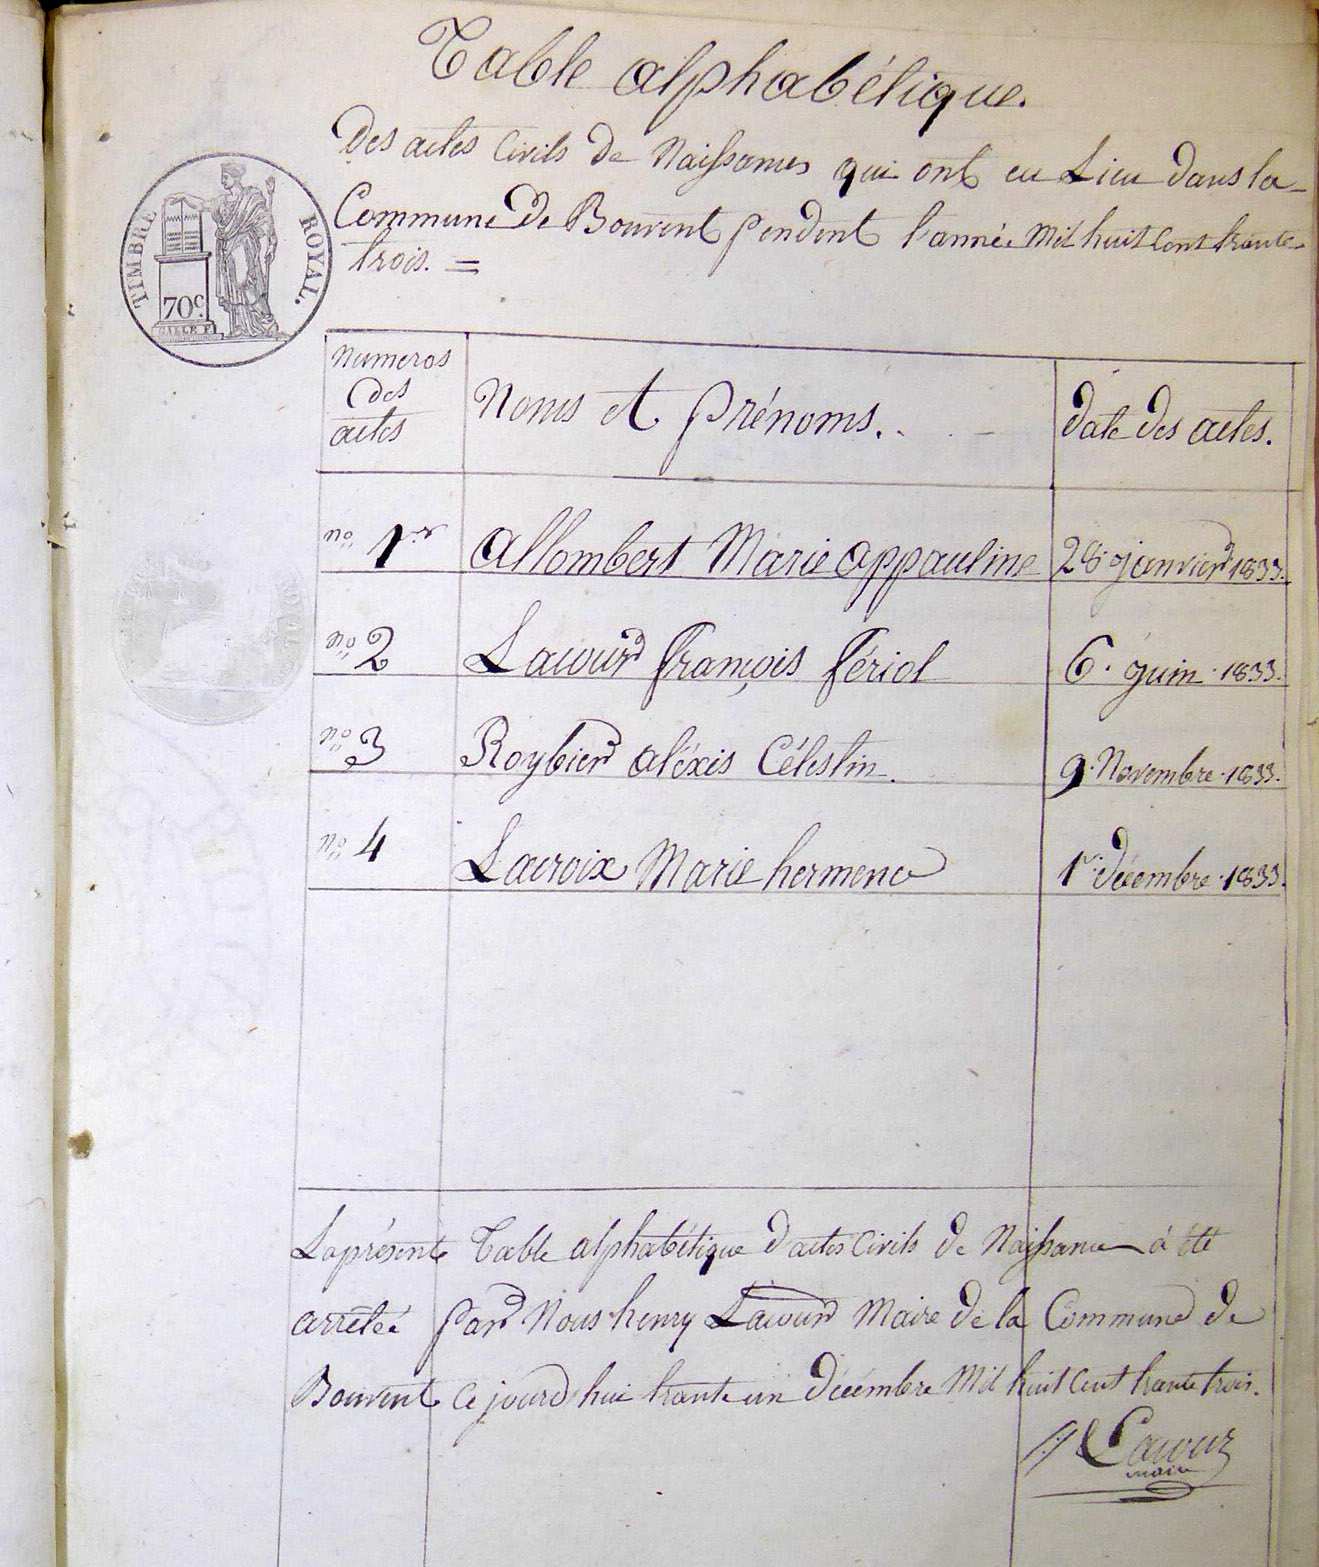 Table alphabétique.
Des actes Civils De Naissances qui ont eu Lieu dans la
Commune De Bouvent pendent l'année Mil huit Cent trente
trois. =
TIMBRE ROYAL.
70c
Numeros des actes
Noms et prénoms.
date des actes.
no 1er Allombert Marie appauline 28 janvier 1833.
no 2 Lacour françois fériol 6. juin 1833.
no 3 Roybier aléxis Célestin. 9. Novembre 1833.
no 4 Lacroix Marie hermence 1er décembre 1833.
La présente Table alphabétique d'actes Civils de Naissance à été
arrêtée par Nous henry Lacour Maire de la Commune de
Bouvent Ce jourd'hui trante un décembre Mil huit Cent trante trois.
Lacour
maire